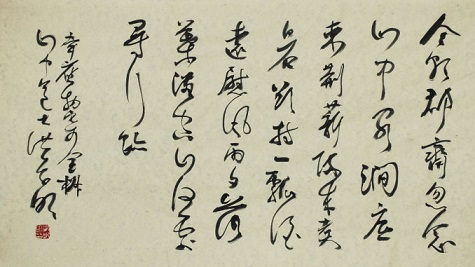 今朝郡齋忽念
山中客澗底
束荊薪歸來煮
白石欲持一瓢酒
遠慰風雨夕落
葉滿空山何處
尋行跡
韋應物寄全椒
山中道士